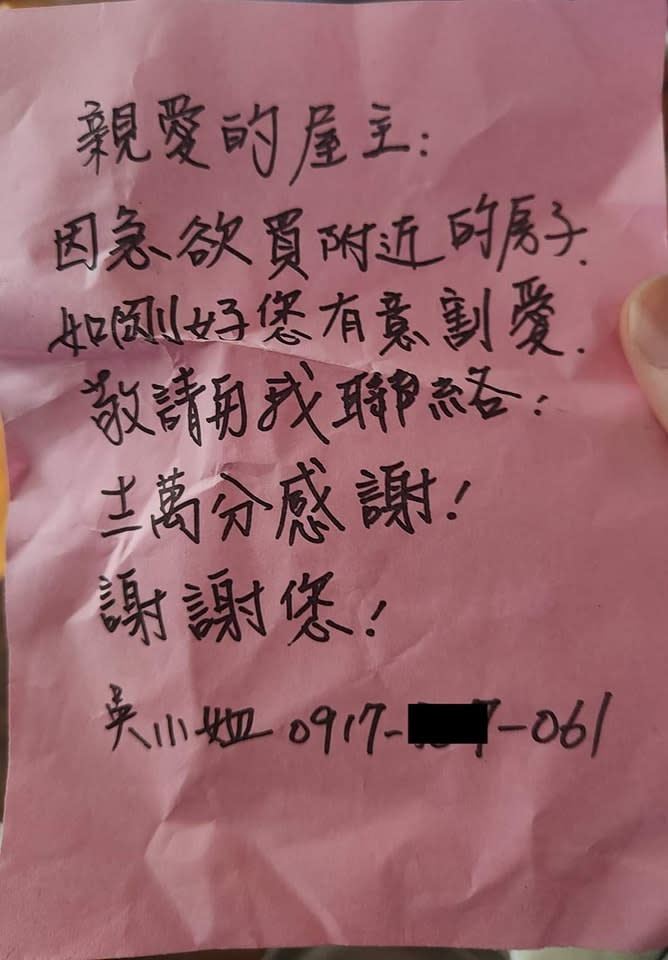 親愛的屋主:
因急欲買附近的房子.
如剛好您有意割愛.
敬請與我聯絡:
十二萬分感謝!
謝謝您!
吳小姐 0917- 7-061